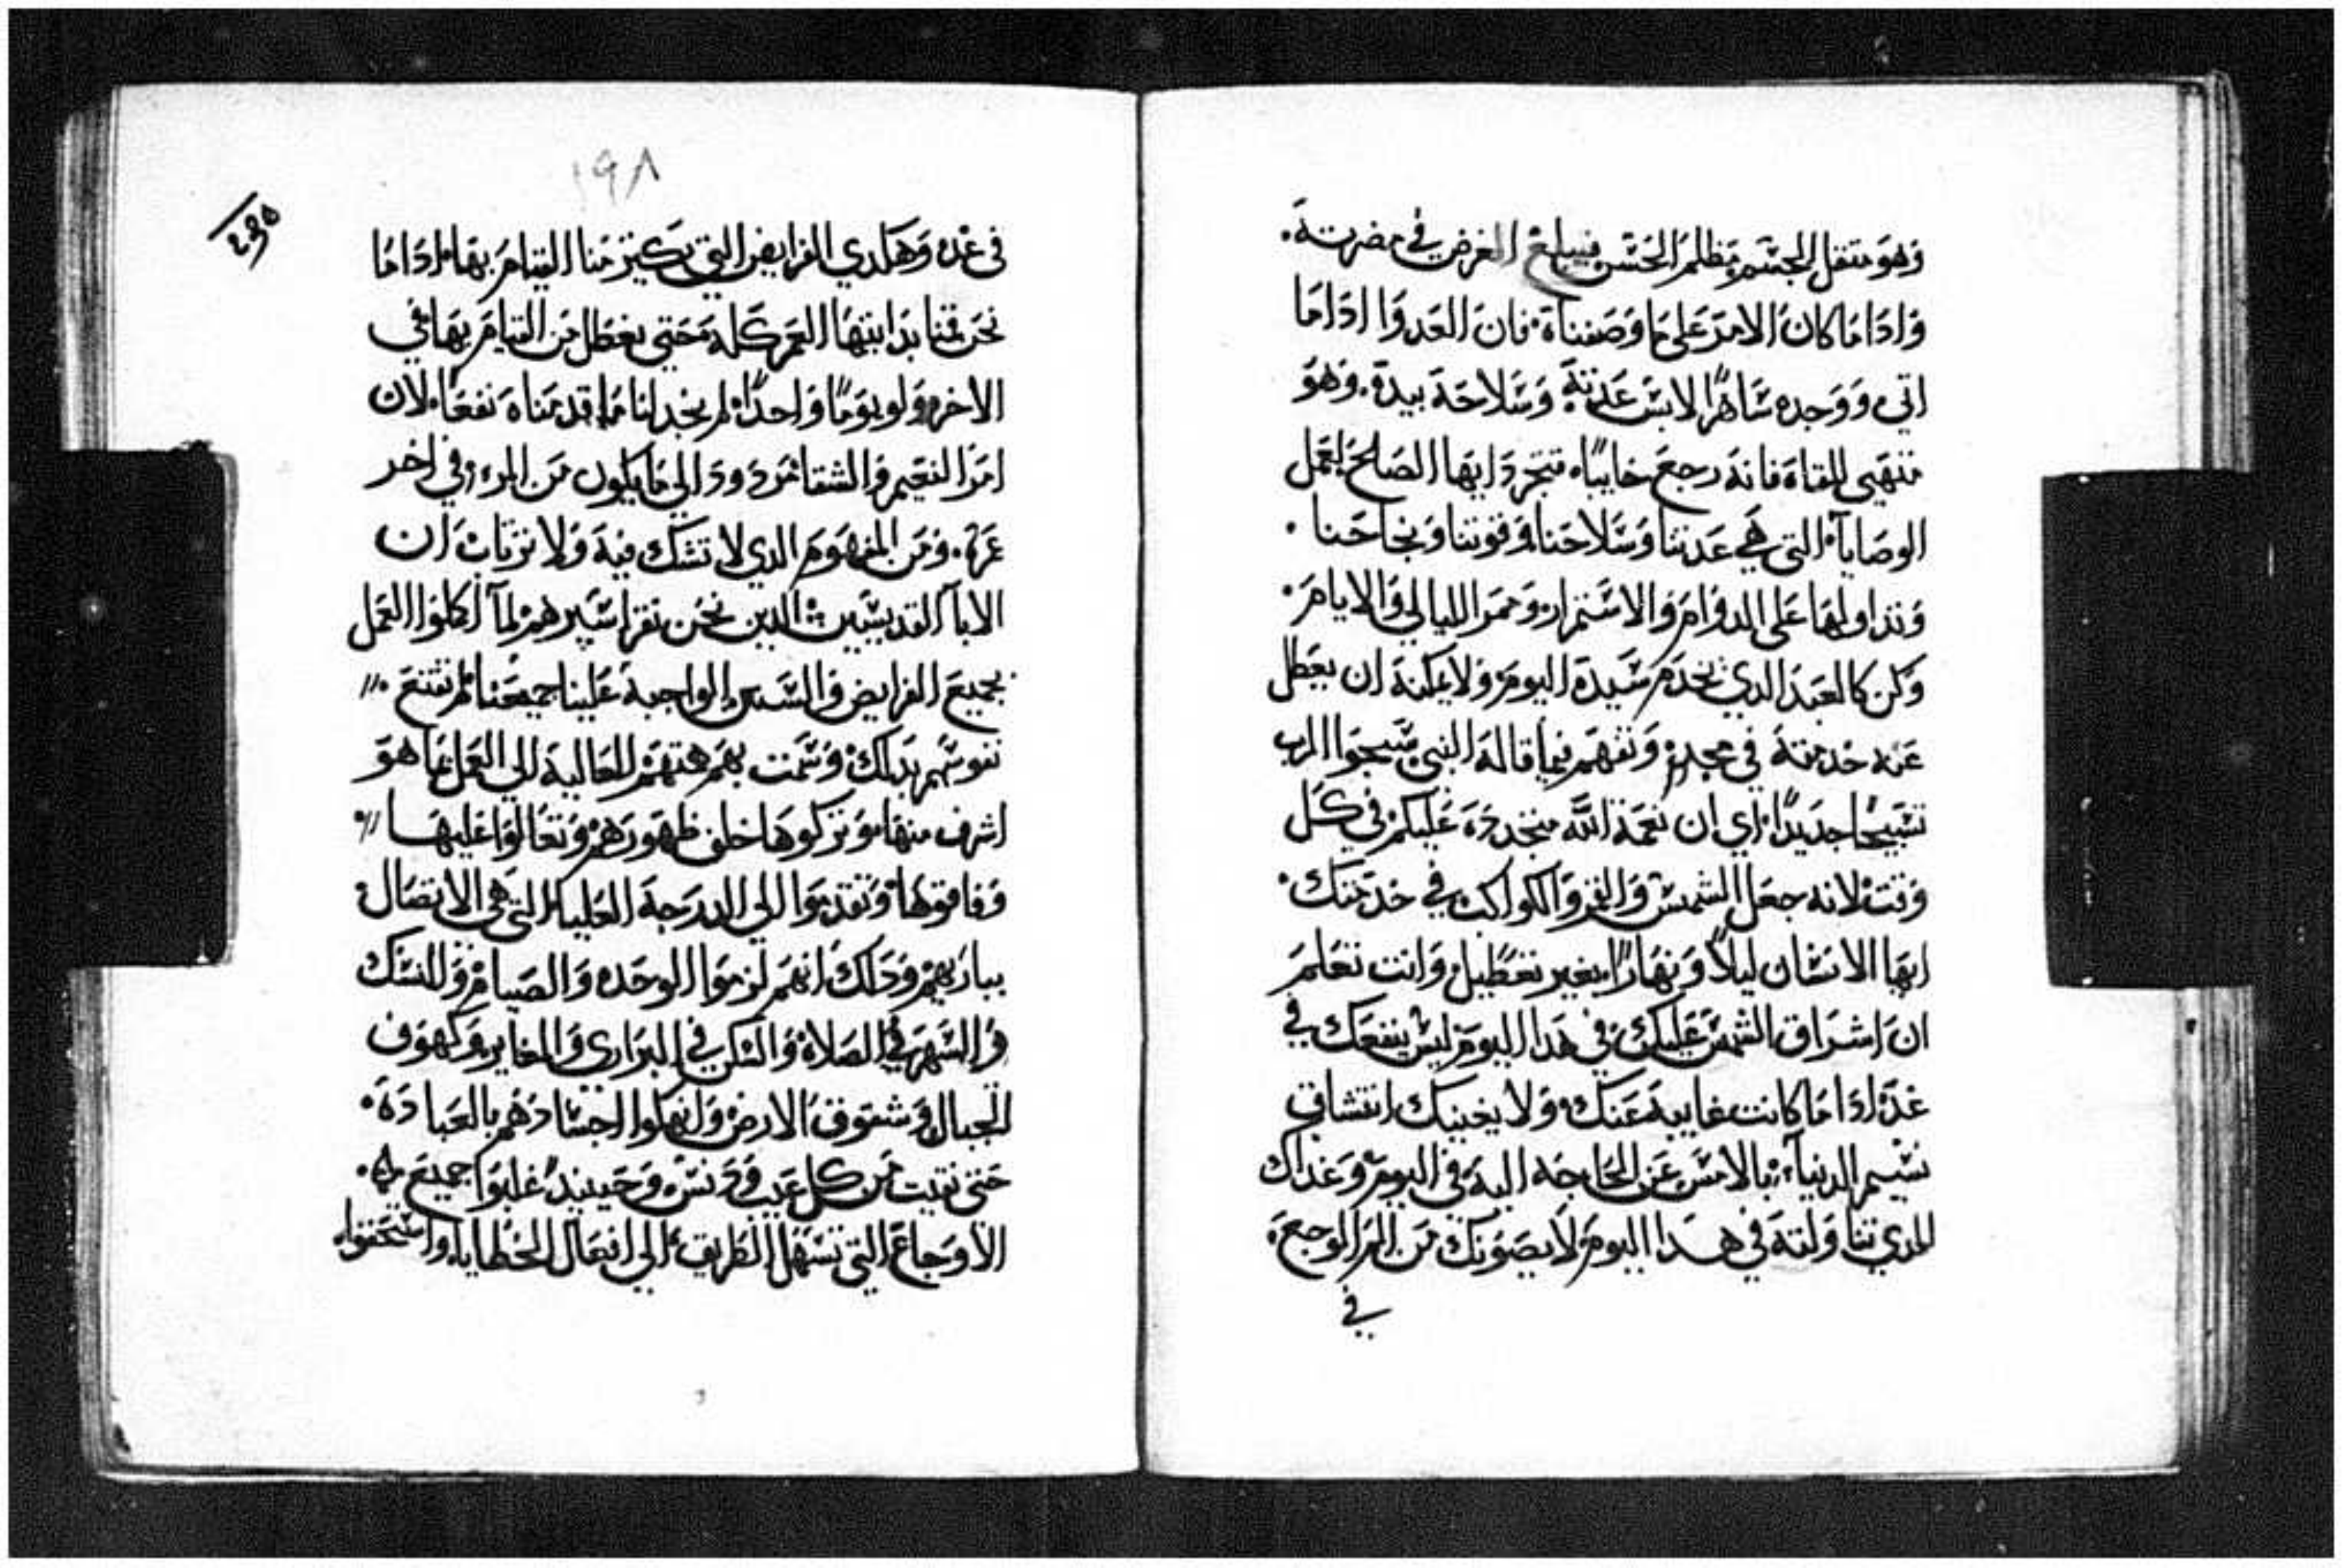 وهو متقل الجسم مظلم الحس فيبلغ الغرض في مضرته.
واداما كان الامر على ما وصفناه فان العدوا اداما
اتى ووجده ساهرًا لابس عدته وسلاحه بيده. وهو
منتهى للقاه فانه رجع خايبًا فتجرد ايها الصالح لعمل
الوصايا التي هي عدتنا وسلاحنا وقوتنا ونجاحنا.
ونداولها على الدوام والاستمرار وممر الليالي والايام.
وكن كالعبد الدي يخدم سيده اليوم ولا يمكنه ان يعطل
عنه خدمته في مجده وتفهم فيما قاله النبي سبحوا الرب
تسبيحًا جديدًا اي ان نعمة الله متجدده عليكم في كل
وقت لانه جعل الشمس والقمر والكواكب في خدمتك.
ايها الانسان ليلاً ونهارًا بغير تعطيل وانت تعلم
ان اشراق الشمس عليك في هدا اليوم ليس ينفعك في
غد اداما كانت غايبه عنك ولا يغنيك انتشاق
نسيم الدنيا بالامس عن الحاجه اليه في اليوم وغداك
الدي تناولته في هدا اليوم لا يصونك من الم الجوع
في
١٩٨
في غده وهكدي الفرايض التي منا القيام بها اداما
نحن قمنا بدايتها العمر كله حتى نعطل من القيام بها في
الاخره ولو يومًا واحدًا لم يجد لنا ما قدمناه نفعًا لان
امر النعيم والشقا مردود الي ما يكون من المرء في اخر
عمره. ومن المفهوم الدي لا نشك فيه ولا نرتاب ان
الابا القديسين الدين نحن نقرا سيرهم لما اكملوا العمل
بجميع الفرايض والسنن الواجبة علينا جميعنا لم تقنع
نفوسهم بدلك وسمت بهم همتهم العالية الي العمل بما هو
اشرف منها وتركوها خلف ظهورهم وتعالوا عليها
وفاقوها وتقدموا الي الدرجة العليا التي هي الاتصال
بباريهم ودلك انهم لزموا الوحده والصيام والنسك
والسهر في الصلاة والسكن في البراري والمغاير وكهوف
الجبال وشقوق الارض وانهكوا اجسادهم بالعبادة.
حتى نقيت من كل عيب ودنس وحينيد غلبوا جميع
الاوجاع التي تسهل الطريق الي افعال الخطايا واستحقوا